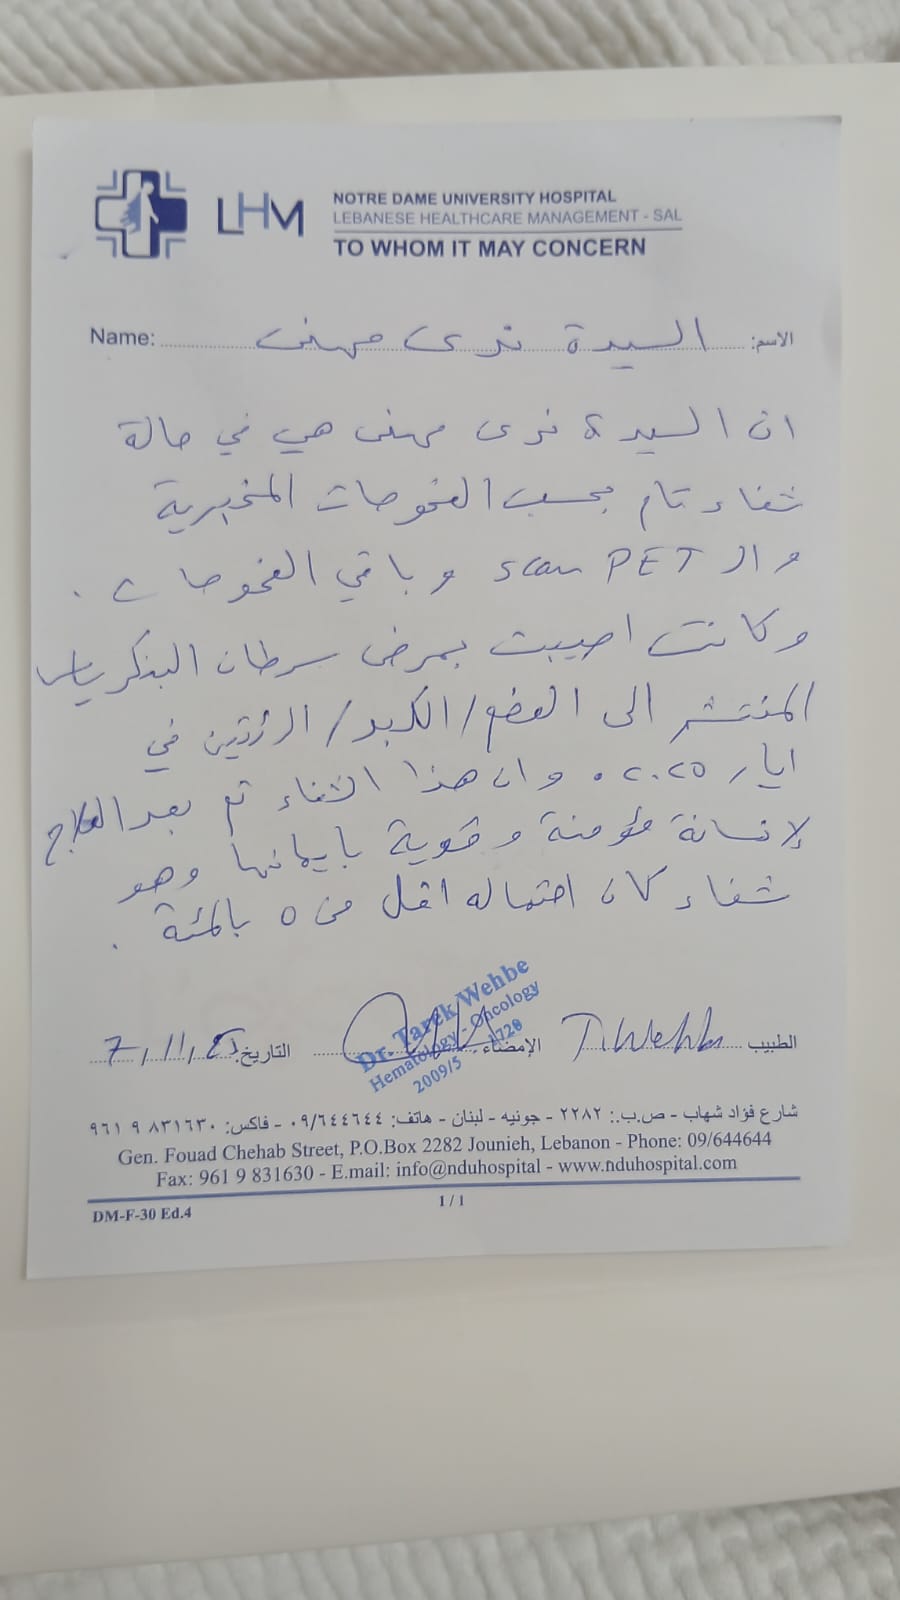 LHM
NOTRE DAME UNIVERSITY HOSPITAL
LEBANESE HEALTHCARE MANAGEMENT - SAL
TO WHOM IT MAY CONCERN
Name: السيدة ندى مهنى الاسم:
ان السيدة ندى مهنى هي في حالة
شفاء تام بحسب الفحوصات المخبرية
و الـ PET scan و باقي الفحوصات .
وكانت اصيبت بمرض سرطان البنكرياس
المنتشر الى العضم/الكبد/الرئتين في
ايار ٢٠٢٥ . وان هذا الشفاء تم بعد العلاج
لإنسانة مؤمنة وقوية بايمانها وهو
شفاء كان احتماله اقل من ٥ بالمئة .
الطبيب T.Wehbe الإمضاء: التاريخ: 7,11,25
Dr. Tarek Wehbe
Hematology - Oncology
2009/5 1728
شارع فؤاد شهاب - ص.ب.: ٢٢٨٢ - جونيه - لبنان - هاتف: ٠٩/٦٤٤٦٤٤ - فاكس: ٨٣١٦٣٠ ٩ ٩٦١
Gen. Fouad Chehab Street, P.O.Box 2282 Jounieh, Lebanon - Phone: 09/644644
Fax: 961 9 831630 - E.mail: info@nduhospital - www.nduhospital.com
DM-F-30 Ed.4
1 / 1